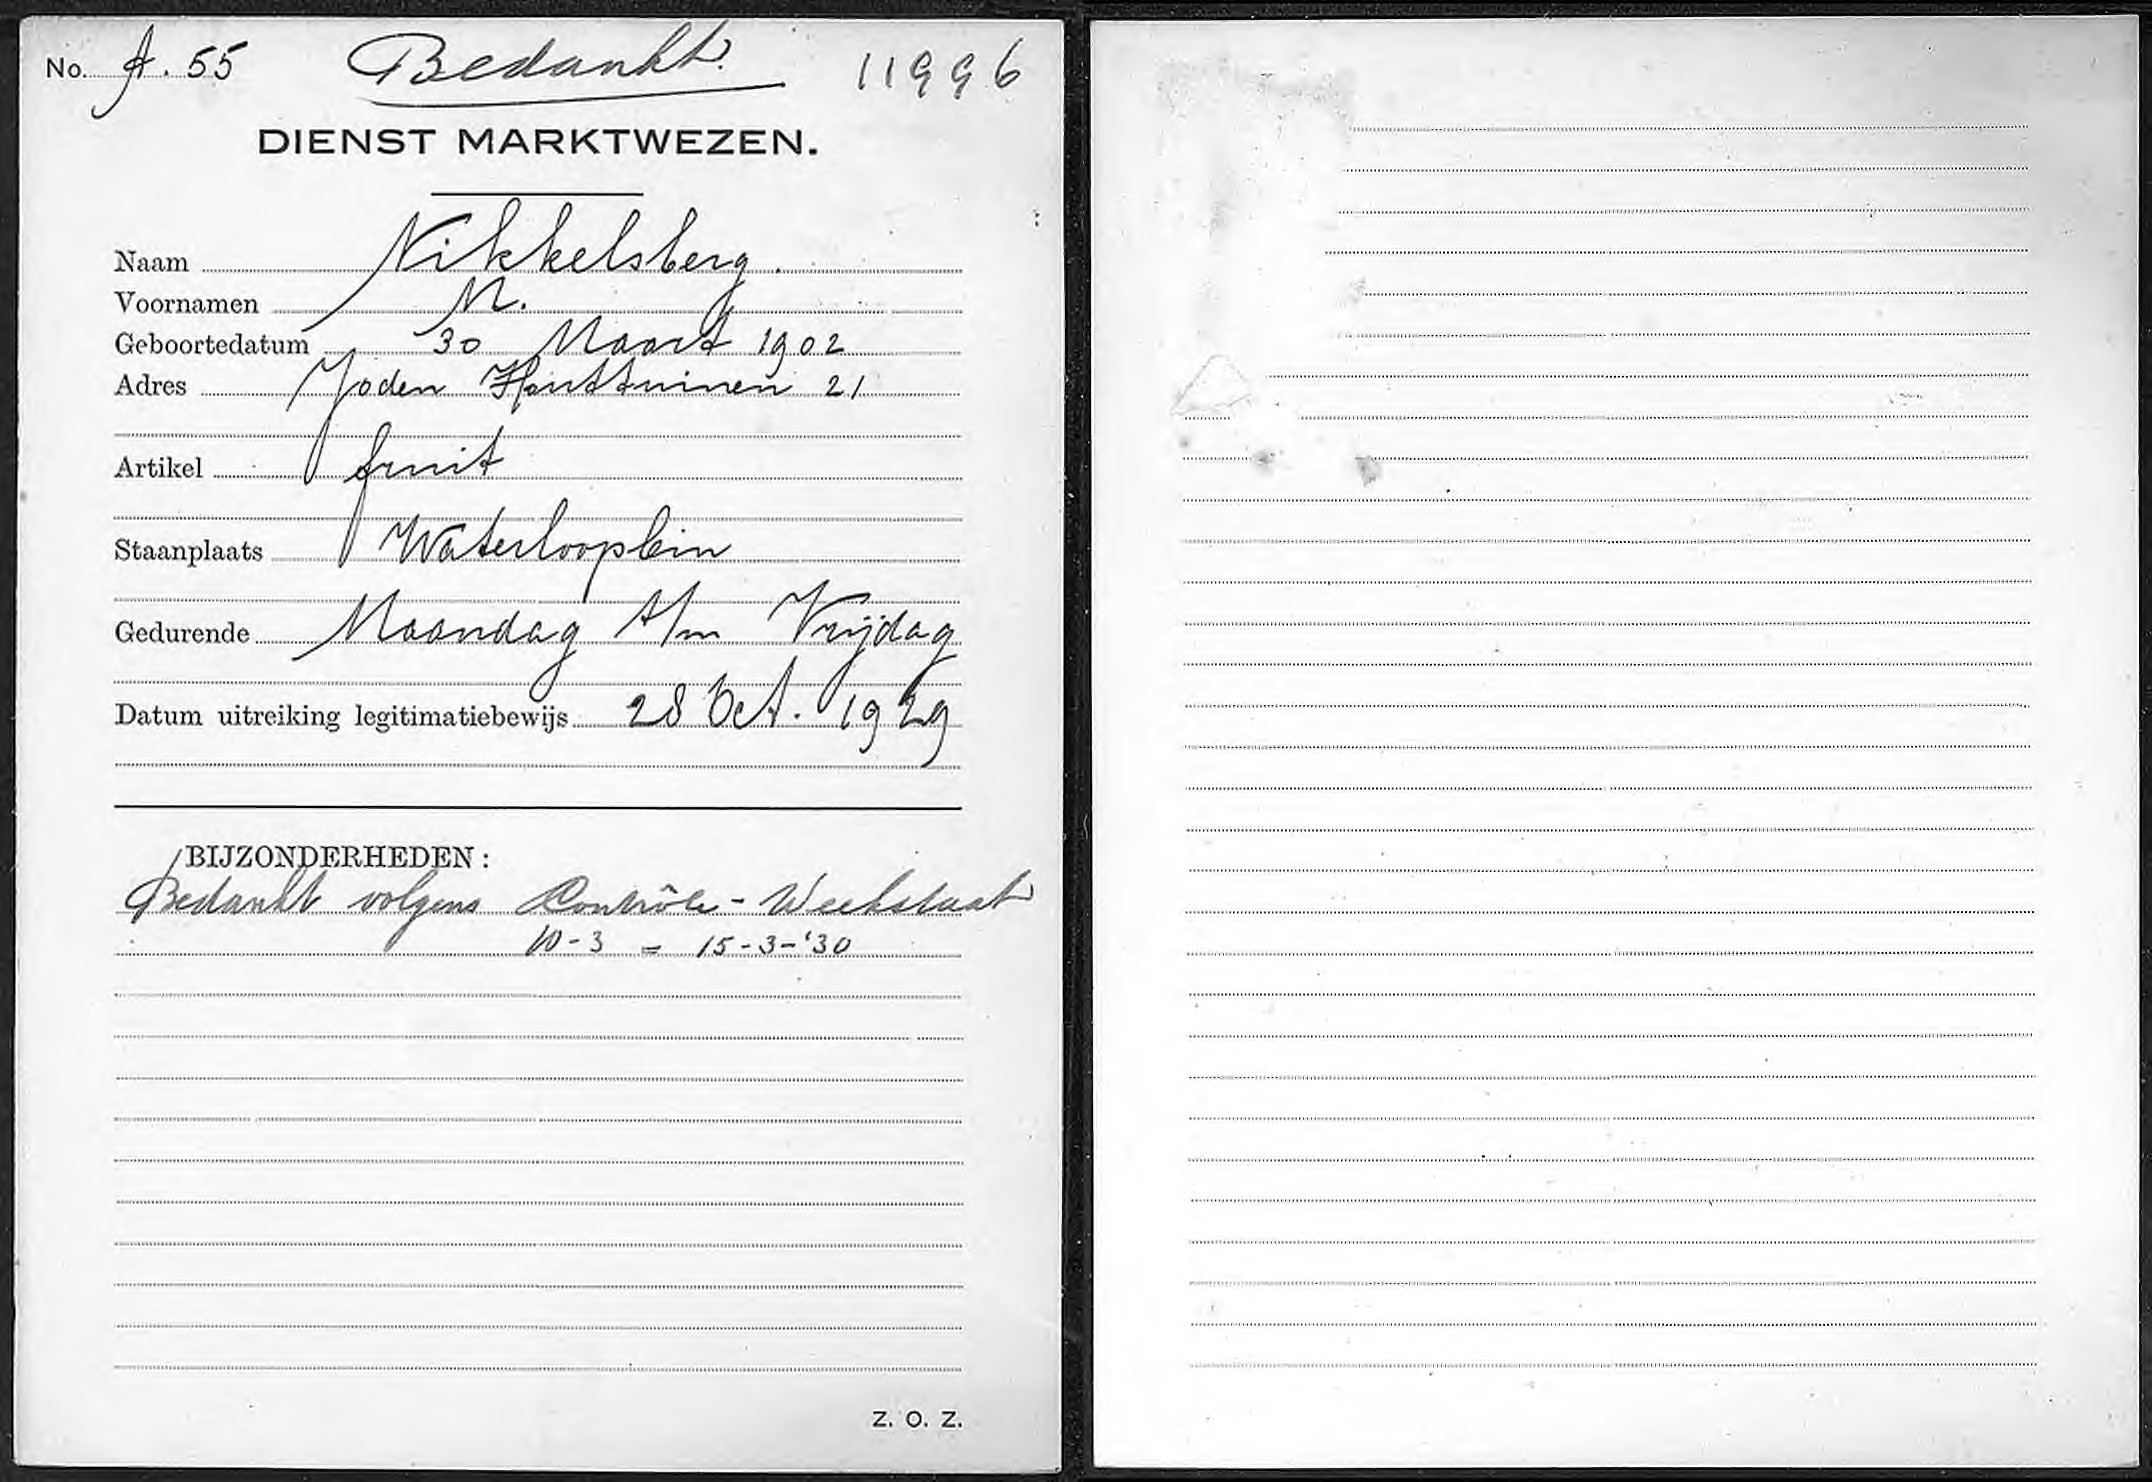 No. A. 55 Bedankt. 11996
DIENST MARKTWEZEN.
Naam Nikkelsberg.
Voornamen M.
Geboortedatum 30 Maart 1902
Adres Joden Houttuinen 21
Artikel fruit
Staanplaats Waterlooplein
Gedurende Maandag t/m Vrijdag
Datum uitreiking legitimatiebewijs 28 Oct. 1929
BIJZONDERHEDEN:
Bedankt volgens Contrôle-Weekstaat
10-3 = 15-3-'30
Z. O. Z.